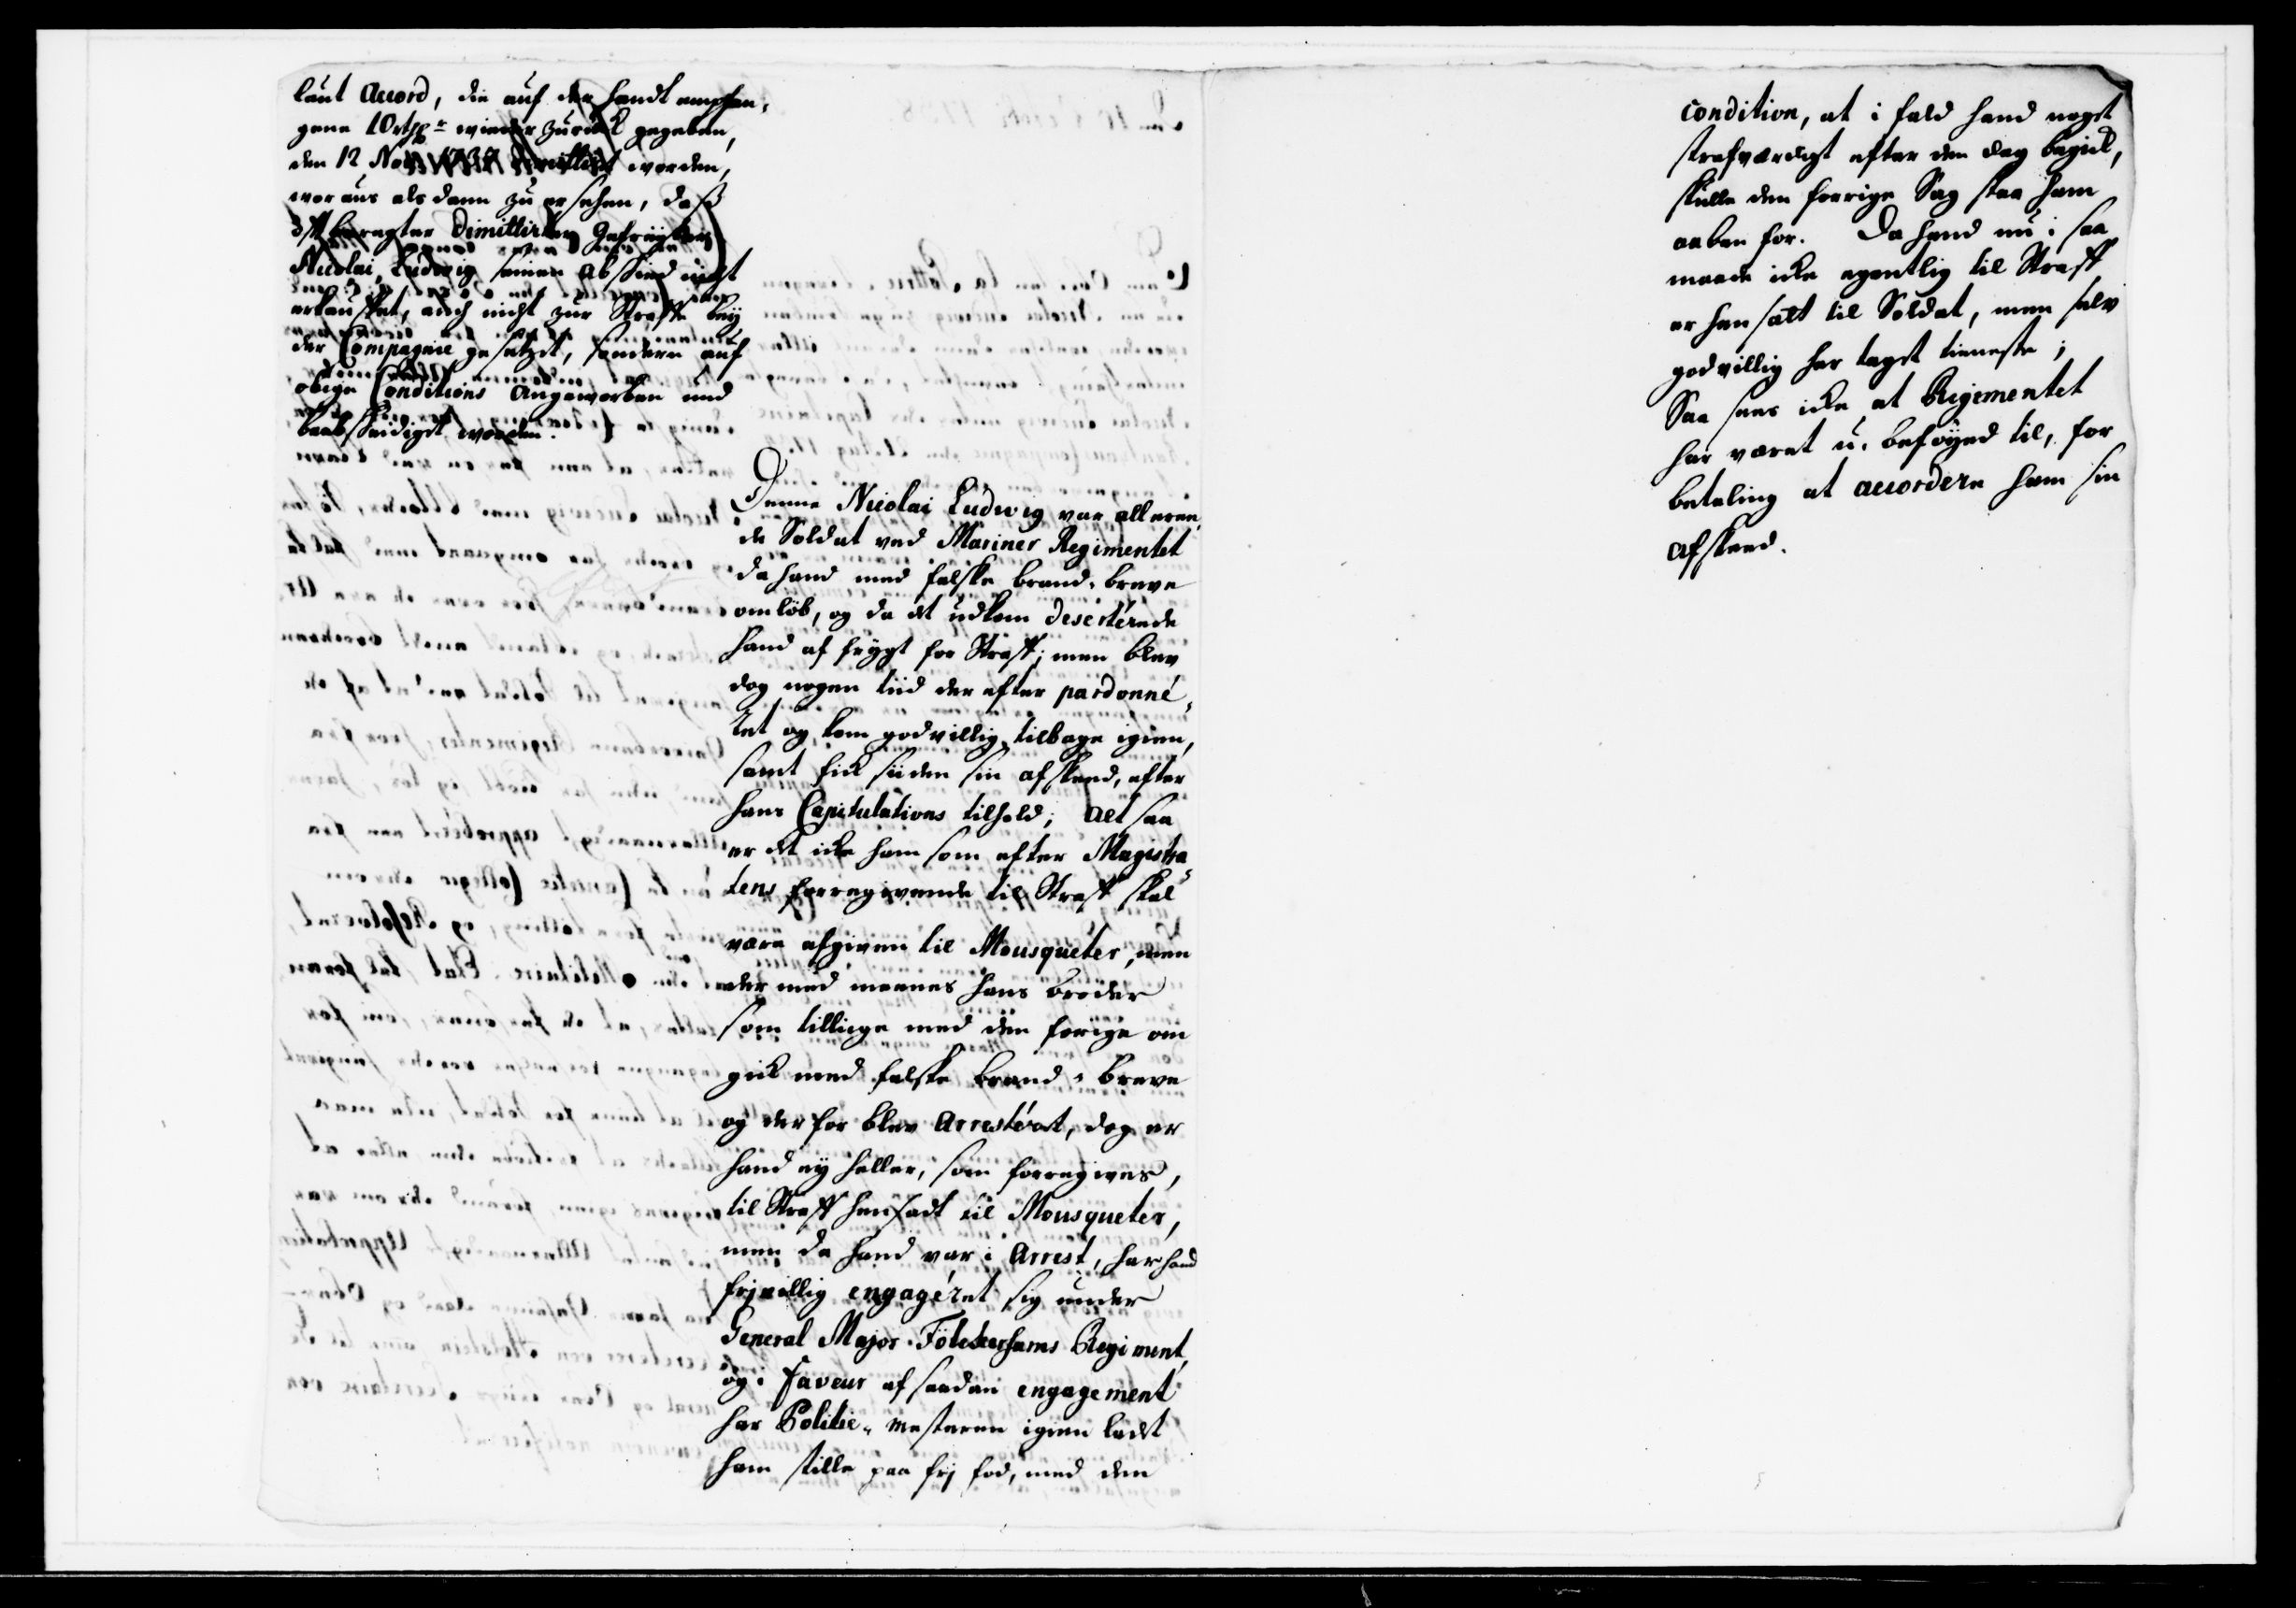 laut Accord, die auf der Handt empfan,
gene 10 rthlr wieder zurück gegeben,
den 12 Nov: 1737 dimittirt worden,
woraus als dann zu ersehen, daß
offtberegter Dimittirter Gefreyter
Nicolai Ludwig seinen Abschied nicht
erkauffet, auch nicht zur Straffe bey
der Compagnie gesetzet, sondern auf
obige Conditions Angeworben und
beabscheidiget worden.
Denne Nicolai Ludwig var alleree,
de Soldat ved Mariner Regimentet
da hand med falske brand-breve
omløb, og da det udkom desertérede
hand af frygt for Straff; men blev
dog nogen tiid der efter pardonné,
ret og kom godvillig tilbage igien,
samt fick siiden sin afskeed, efter
hans Capitulations tilhold; Alt saa
er det icke ham som efter Magistra,
tens foregivende til Straff skal
være afgiven til Mousqueter, men
der med meenes hans broder
som tillige med den forige om
gick med falske brand-breve
og der for blev Arrestéret, dog er
hand ey heller, som foregives,
til Straff hensadt til Mousqueter,
men da hand var i Arrest, har hand
frjvillig engagéret sig under
General Major Fölckersahms Regiment,
og i Faveur af saadan engagement
har Politie-Mesteren igien ladt
ham stille paa frj fod, med den
condition, at i fald hand noget
strafværdigt efter den dag begick,
skulle den forrige Sag staa ham
aaben for. Da hand nu i saa
maade icke egentlig til Straff
er hensatt til Soldat, men selv
godvillig har taget tieneste;
Saa sees icke at Regimentet
har været u-beføyed til, for
betaling at accordere ham sin
Afskeed.